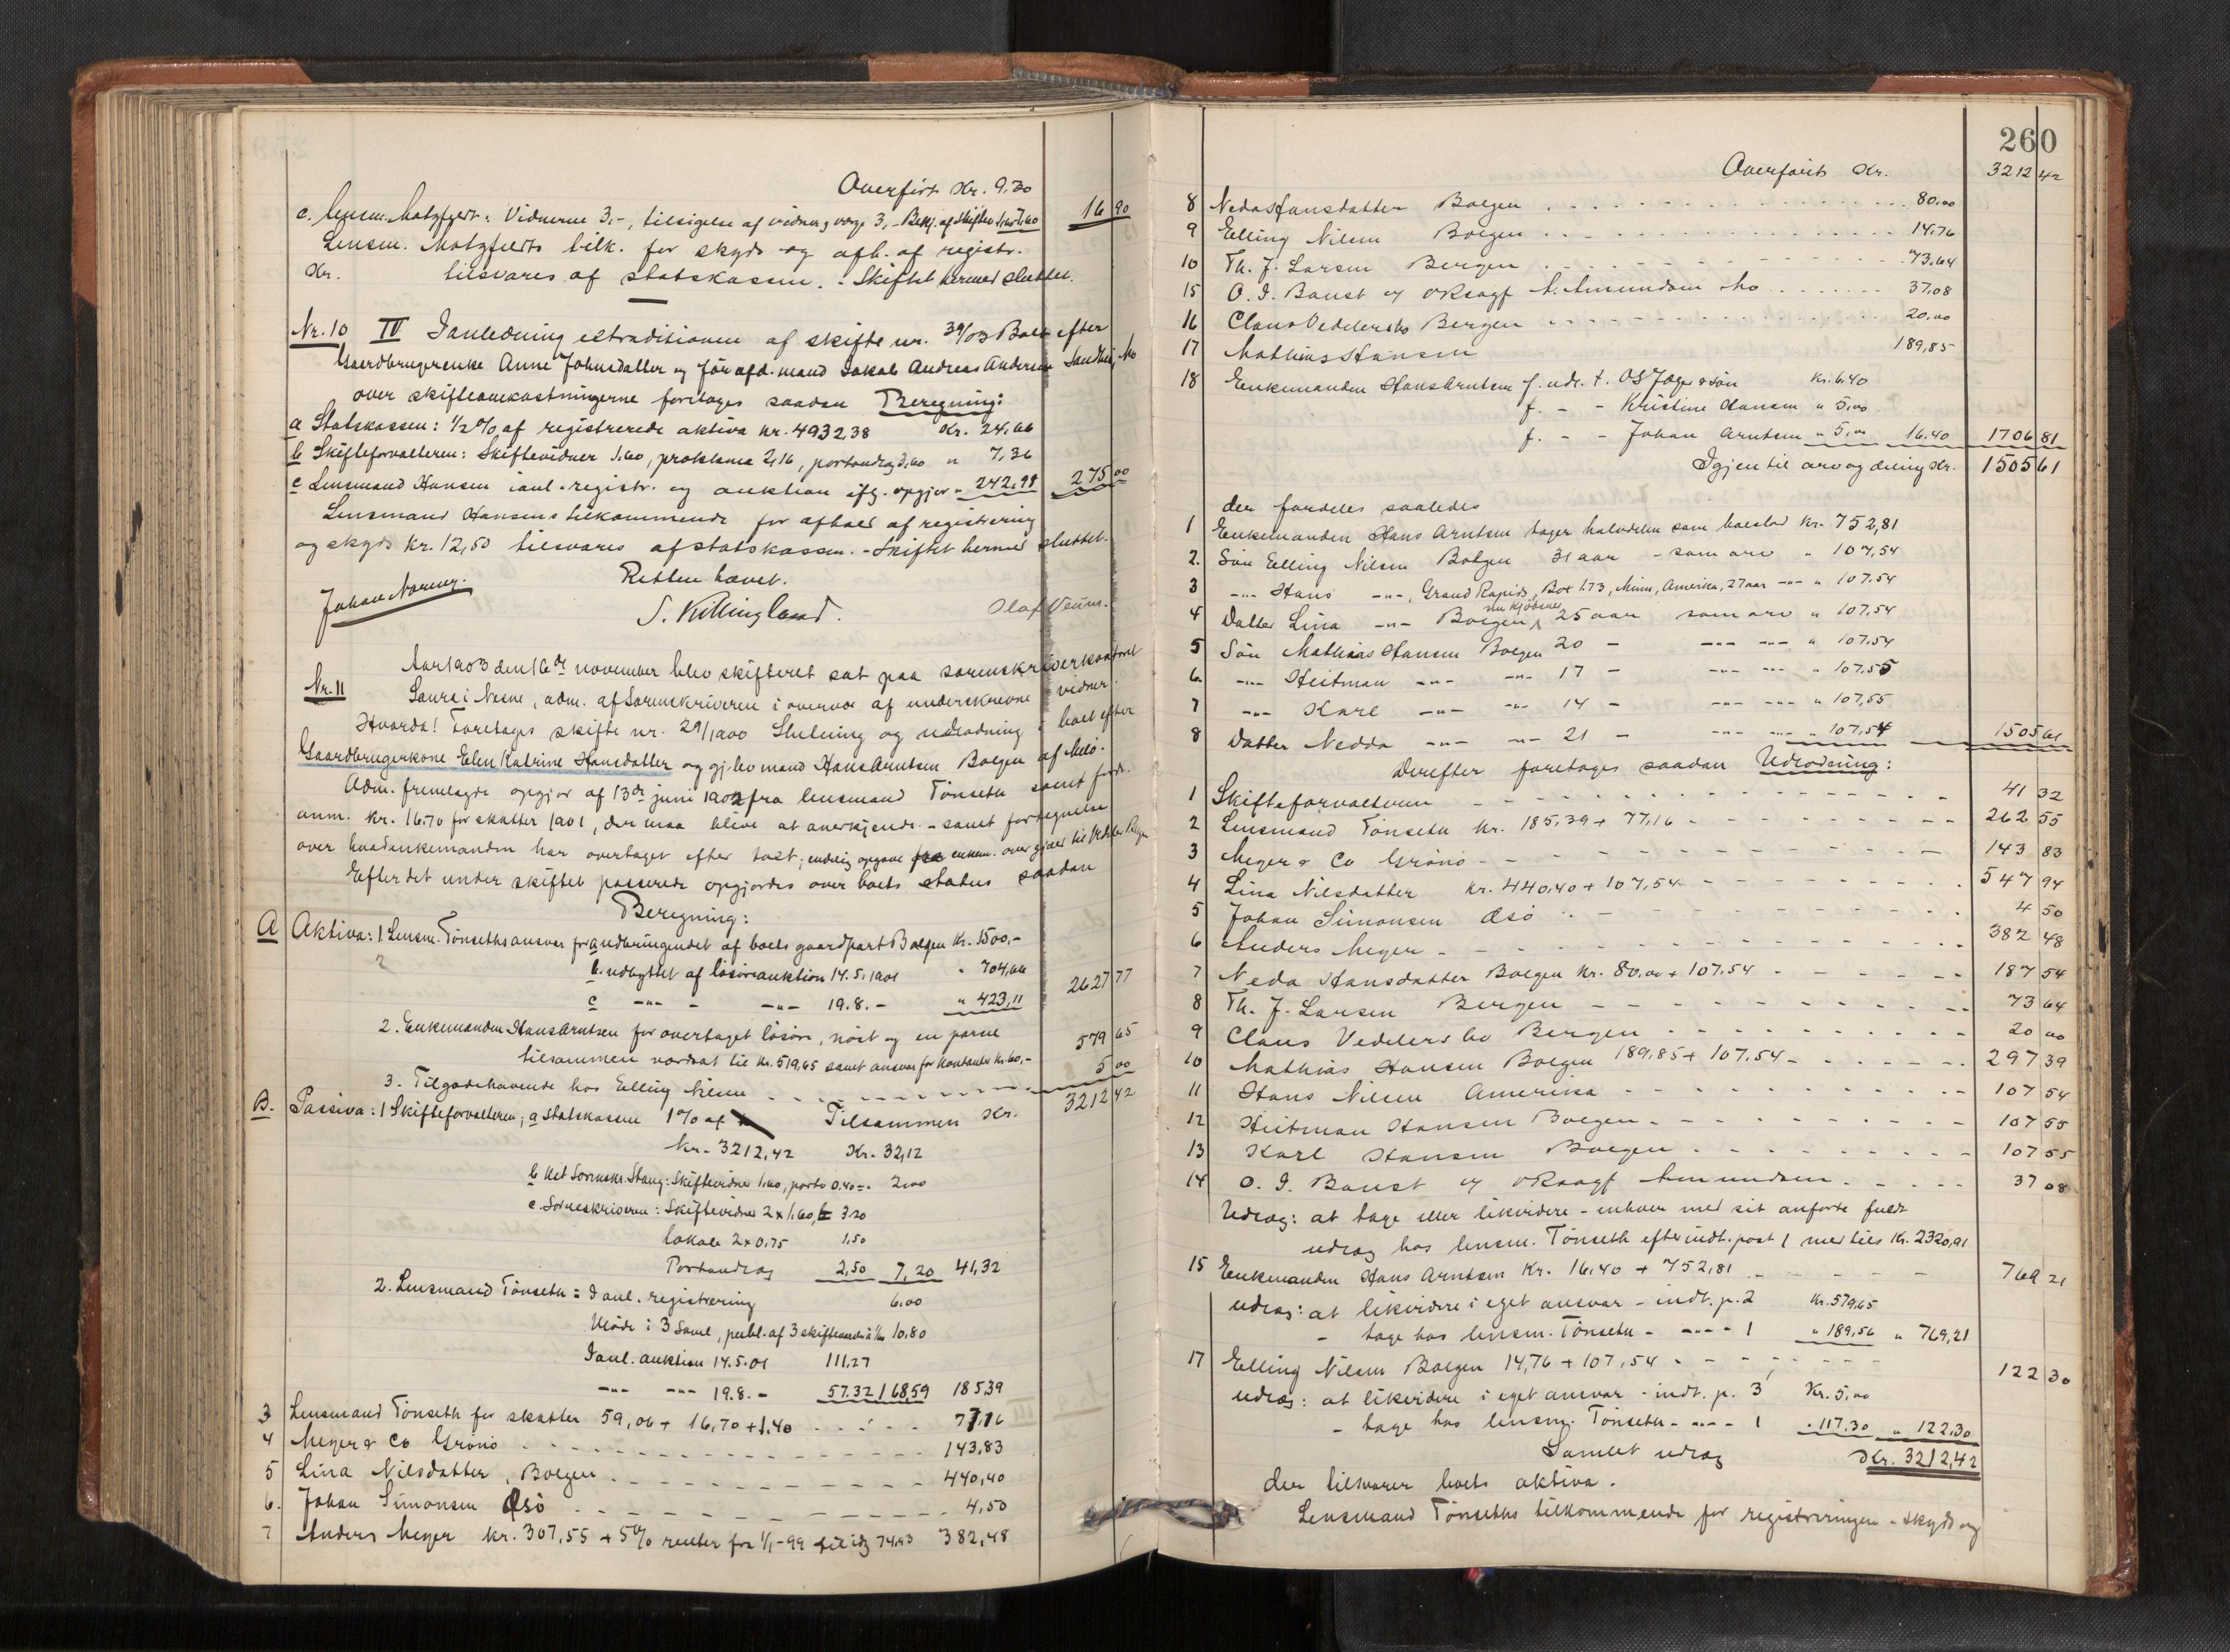 Overført Kr. 9.30
c. Lensm. Motzfeldt: Vidnerne 3,-, tilsigelse af vidner og værge 3,- Bekj. af skiftes. 1,60 7,60 16 90
Lensm. Motzfeldts tilk. for skyds og afh. af registr.
Kr. tilsvares af statskassen. - Skiftet hermed sluttet.
Nr. 10 IV I anledning extraditionen af skifte nr. 39/03 Boet efter
Gaardbrugerenke Anne Johnsdatter og før afd. mand Jakob Andreas Andersen Sandhei, Mo
over skifteomkostningerne foretages saadan Beregning:
a Statskassen: 1/2 % af registrerede aktiva kr. 4932,38 Kr. 24,66
b Skifteforvalteren: Skiftevidner 1.60, proklama 2,16, portoudlæg 3,60 " 7,36
c Lensmand Hansen i anl. registr. og auktion iflg. opgjør " 242,98 275 00
Lensmand Hansens tilkommende for afhold af registrering
og skyds Kr. 12,50 tilsvares af statskassen. - Skiftet hermed sluttet.
Retten hævet.
Johan Norum. S. Killingland. Olaf Veum.
Nr. 11 Aar 1903 den 16de november blev skifteret sat paa sorenskriverkontoret
Saura i Nesne, adm. af Sorenskriveren i overvær af underskrevne vidner.
Hvorda! Foretages skifte nr. 29/1900 Slutning og udlodning i boet efter
Gaardbrugerkone Elen Katrine Hansdatter og gj.lev mand Hans Arntsen Bolgen af Melø.
Adm. fremlagde opgjør af 13de juni 1902 fra lensmand Tønseth samt fordr.
anm. kr. 16.70 for skatter 1901, der maa blive at anerkjende. - samt fortegnelse
over hvad enkemanden har overtaget efter takst; endelig opgave fra enkem. over gjæld til Vedeler Bergen
Efter det under skiftet passerede opgjordes over boets status saadan
Beregning:
A Aktiva: 1 Lensm. Tønseths ansvar for a udbringendet af boets gaardpart Bolgen Kr. 1500.-
b. udbyttet af løsøreauktion 14.5.1901 " 704,66
c -"- - -"- 19.8. - " 423,11 2627 77
2. Enkemanden Hans Arntsen for overtaget løsøre, nøst og en parcel
tilsammen vurdert til Kr. 519,65 samt ansvar for kontanter Kr. 60,- 579 65
3. Tilgodehavende hos Elling Nilsen 5 00
B. Passiva: 1 Skifteforvalteren; a Statskassen 1% af Tilsammen Kr. 3212 42
Kr. 3212,42 Kr. 32,12
b Kst Sorenskr. Stang: Skiftevidner 1.60, porto 0.40 =. 2.00
c. Sorenskriveren: Skiftevidner 2 x 1.60, 3.20
lokale 2 x 0.75 1.50
Portoudlæg 2,50 7,20 41,32
2. Lensmand Tønseth: I anl. registrering 6.00
Møde i 3 Saml, publ. af 3 skifteanda à 1/60 10.80
I anl. auktion 14.5.01 111,27
-"- -"- 19.8. - 57.32 168,59 185,39
3 Lensmand Tønseth for skatter 59,06 + 16,70 + 1.40 77,16
4 Meyer & Co Grønø 143,83
5 Lina Nilsdatter, Bolgen 440,40
6. Johan Simonsen Æsø 4,50
7 Anders Meyer kr. 307,55 + 5% renter fra 1/1-99 til idg 74,93 382,48
260
Overført Kr. 3212 42
8 Neda Hansdatter Bolgen 80.00
9 Elling Nilsen Bolgen 14.76
10 Th. J. Larsen Bergen 73.64
15 O. I. Baust og oRsagf A. Amundsen Mo 37,08
16 Claus Vedelers bo Bergen 20.00
17 Mathias Hansen 189,85
18 Enkemanden Hans Arntsen f. udl. t. OS Jæger & søn Kr. 6.40
f. - - Kristine Hansen " 5.00
f. - - Johan Arntsen " 5.00 16.40 1706 81
Igjen til arv og deling Kr. 1505 61
der fordeles saaledes
1 Enkemanden Hans Arntsen tager halvdelen som boeslod Kr. 752,81
2. Søn Elling Nilsen Bolgen 31 aar - som arv " 107,54
3 -"- Hans -"-, Grand Rapids, Box 173, Minn, Amerika, 27 aar -"- " 107.54
nu Kjøbsnes
4 Datter Lina -"- Bolgen 25 aar som arv " 107,54
5 Søn Mathias Hansen Bolgen 20 - -"- -"- " 107.54
6. -"- Heitman -"- -"- 17 - -"- -"- " 107.55
7 -"- Karl -"- -"- 14 - -"- -"- " 107,55
8 Datter Nedda -"- -"- 21 - -"- -"- " 107,54 1505 61
Derefter foretages saadan Udlodning:
1 Skifteforvalteren 41 32
2 Lensmand Tønseth Kr. 185,39 + 77,16 262 55
3 Meyer & Co Grønø 143 83
4 Lina Nilsdatter Kr. 440,40 + 107,54 547 94
5 Johan Simonsen Æsø 4 50
6 Anders Meyer 382 48
7 Neda Hansdatter Bolgen Kr. 80.00 + 107.54 187 54
8 Th. J. Larsen Bergen 73 64
9 Claus Vedelers bo Bergen 20 00
10 Mathias Hansen Bolgen 189,85 + 107.54 297 39
11 Hans Nilsen Amerika 107 54
12 Heitman Hansen Bolgen 107 55
13 Karl Hansen Bolgen 107 55
14 O. I. Baust og oRsagf Amundsen 37 08
Udlæg: at tage eller likvidere - enhver med sit anførte fuldt
udlæg hos lensm. Tønseth efter indt. post 1 med tils. Kr. 2320,91
15 Enkemanden Hans Arntsen Kr. 16.40 + 752,81 769 21
udlæg: at likvidere i eget ansvar - indt. p. 2 Kr. 579,65
- tage hos lensm. Tønseth - -"- - 1 " 189,56 " 769,21
17 Elling Nilsen Bolgen 14,76 + 107,54 122 30
udlæg: at likvidere i eget ansvar - indt. p. 3 Kr. 5,00
- tage hos lensm. Tønseth - -"- - 1 " 117.30 " 122.30
Samlet udlæg Kr. 3212,42
der tilsvarer boets aktiva.
Lensmand Tønseths tilkommende for registreringen - skyds og